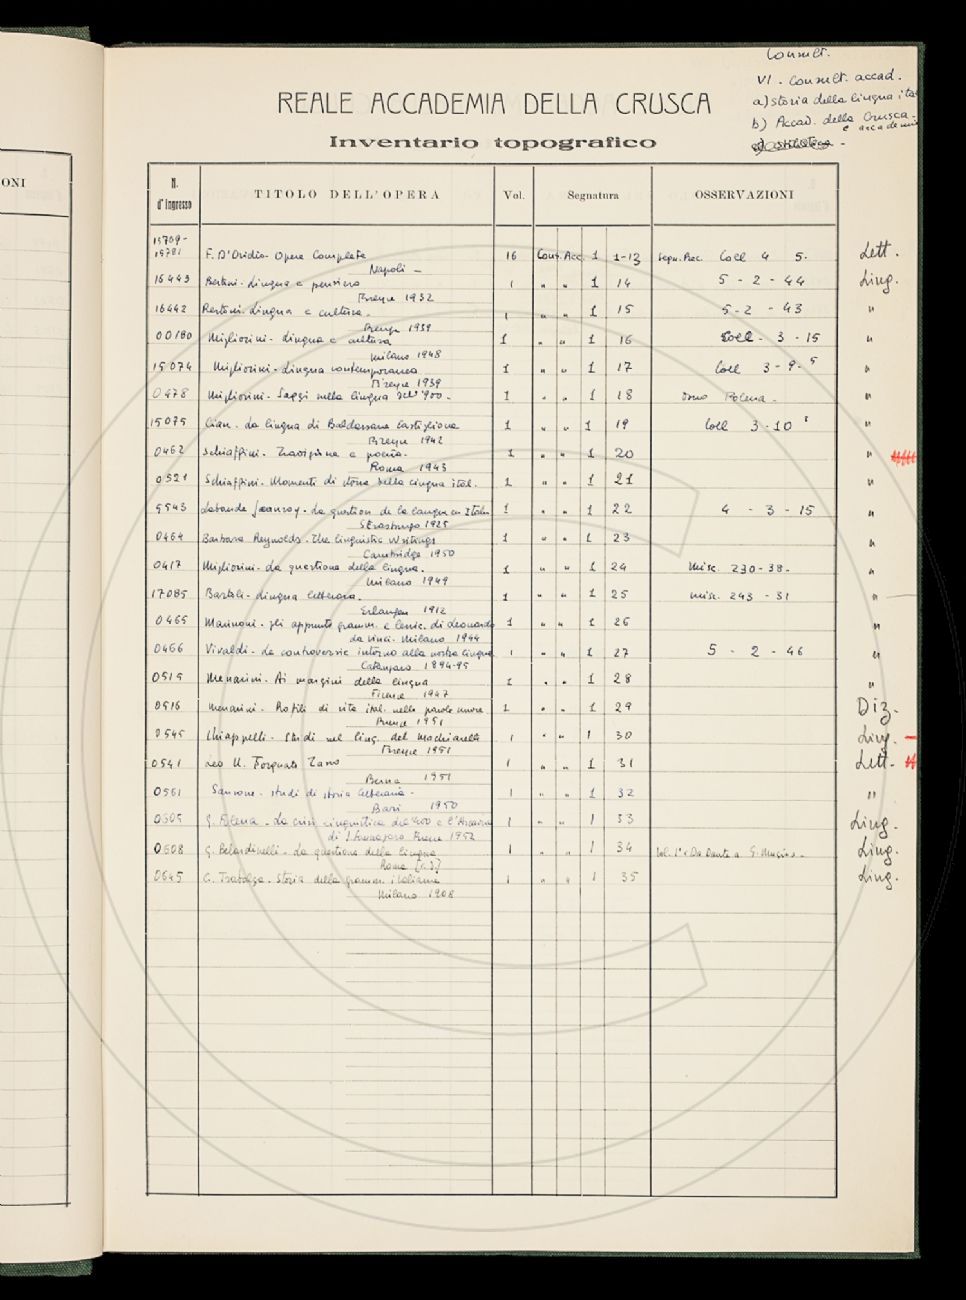 ONI
Consult.
VI. Consult. accad.
a) storia della lingua ita
b) Accad. della Crusca
e accademi
REALE ACCADEMIA DELLA CRUSCA
Inventario topografico
N. d'Ingresso TITOLO DELL'OPERA Vol. Segnatura OSSERVAZIONI
15769-
15781 F. D'Ovidio - Opere Complete 16 Cons. Acc. 1 1-13 Segn. Prec. Coll 4 5. Lett.
Napoli -
16443 Bertoni - Lingua e pensiero 1 " " 1 14 5 - 2 - 44 Ling.
Firenze 1932
16442 Bertoni. Lingua e cultura. 1 " " 1 15 5-2 - 43 "
Firenze 1939
00180 Migliorini - Lingua e cultura 1 " " 1 16 Coll - 3 - 15 "
Milano 1948
15074 Migliorini - Lingua contemporanea 1 " " 1 17 Coll 3-9-5 "
Firenze 1939
0478 Migliorini - Saggi sulla lingua del '900. 1 " " 1 18 dono Folena - "
15075 Cian. La lingua di Baldassare Castiglione 1 " " 1 19 Coll 3-10 "
Firenze 1942
0462 Schiaffini. Tradizione e poesia. 1 " " 1 20 "
Roma 1943
0521 Schiaffini. Momenti di storia della lingua ital. 1 " " 1 21 "
5543 Labande Jeanroy - La question de la langue en Italie 1 " " 1 22 4 - 3 - 15 "
Strasburgo 1925
0464 Barbara Reynolds - The linguistic Writings 1 " " 1 23 "
Cambridge 1950
0417 Migliorini - La questione della lingua. 1 " " 1 24 Misc. 230-38. "
Milano 1949
17085 Bartoli - Lingua letteraria. 1 " " 1 25 Misc. 243 - 31 "
Erlangen 1912
0465 Marinoni - gli appunti gramm. e lessic. di Leonardo 1 " " 1 26 "
da Vinci. Milano 1944
0466 Vivaldi - Le controversie intorno alla nostra lingua 1 " " 1 27 5 - 2 - 46 "
Catanzaro 1894-95
0515 Menarini - Ai margini della lingua 1 " " 1 28 "
Firenze 1947
0516 Menarini - Profili di vita ital. nelle parole nuove 1 " " 1 29 Diz.
Firenze 1951
0545 Chiappelli - Studi sul ling. del Machiavelli 1 " " 1 30 Ling.
Firenze 1951
0541 Leo U. Torquato Tasso 1 " " 1 31 Lett.
Berna 1951
0561 Sansone - Studi di storia letteraria - 1 " " 1 32 "
Bari 1950
0505 G. Folena - La crisi linguistica del '400 e l'Arcadia 1 " " 1 33 Ling.
di I. Sannazaro Firenze 1952
0608 G. Belardinelli - La questione della lingua 1 " " 1 34 Vol. 1° : Da Dante a G. Muzio. Ling.
Roma [s.d.]
0645 C. Trabalza - Storia della gramm. italiana 1 " " 1 35 Ling.
Milano 1908